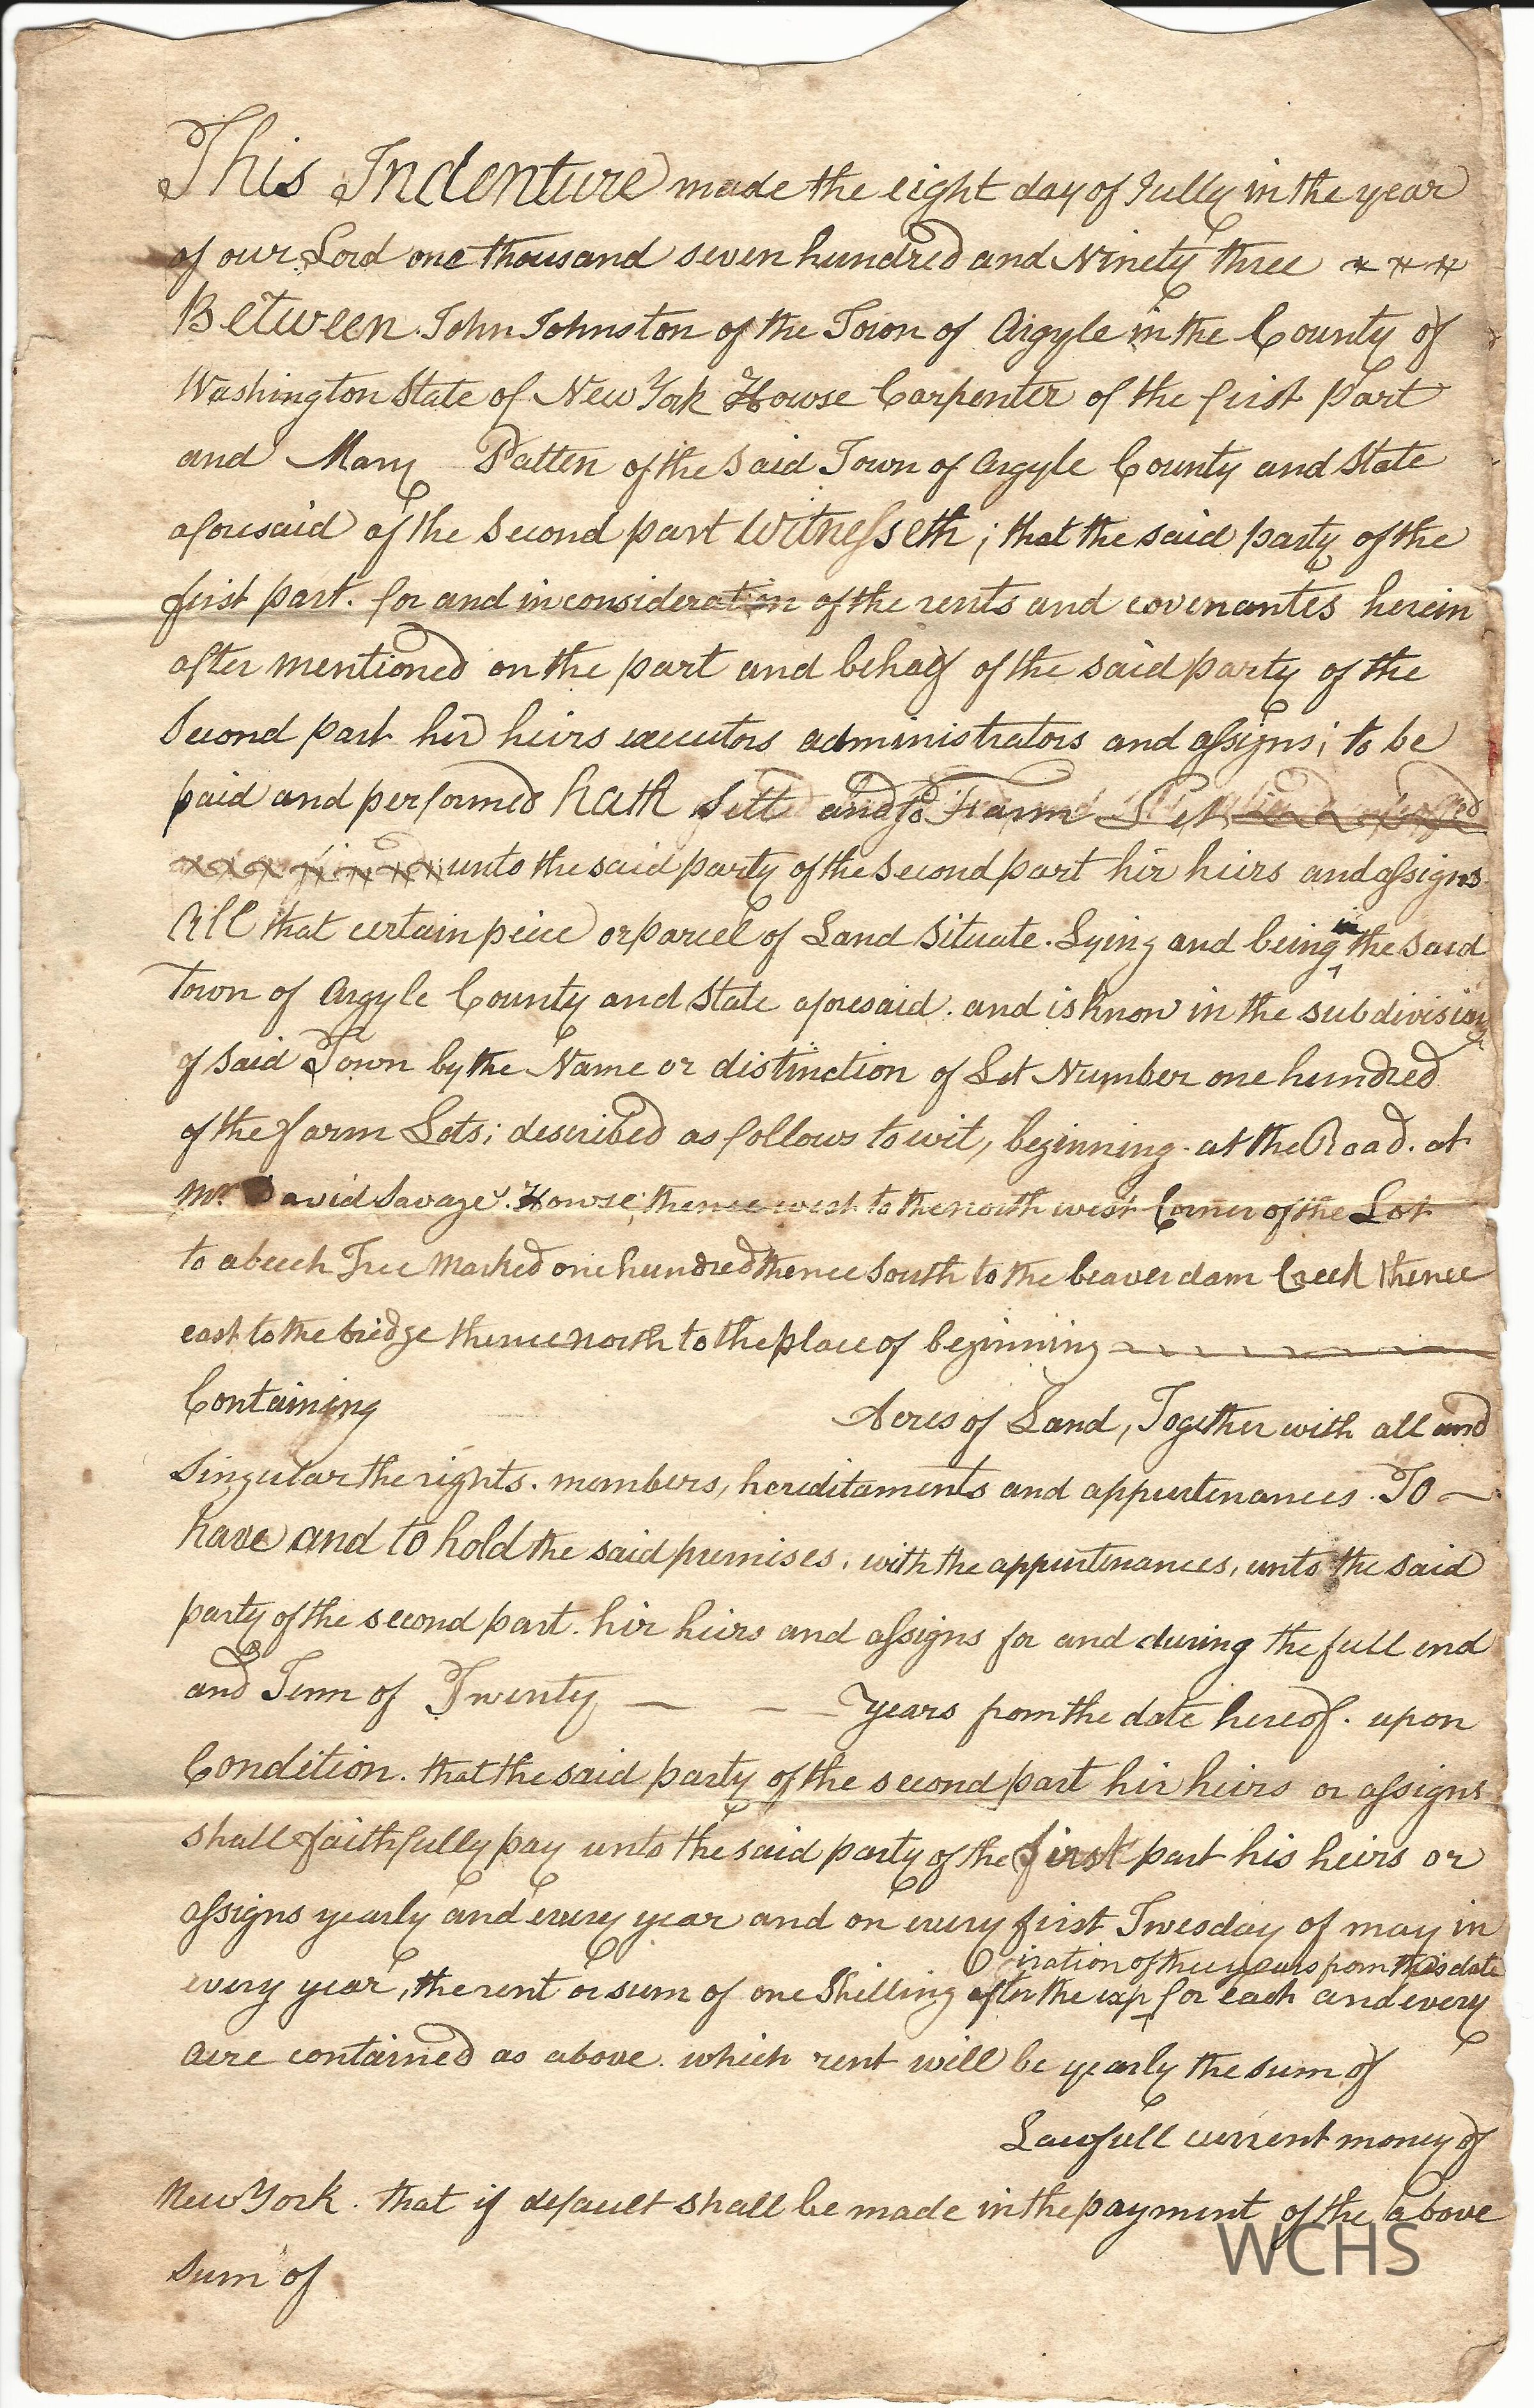 This Indenture made the eight day of Jully in the year
of our Lord one thousand seven hundred and Ninety three * * *
Between John Johnston of the Town of Argyle in the County of
Washington State of New York Howse Carpenter of the first Part
and Mary Patten of the said Town of Argyle County and State
aforesaid of the Second part Witnesseth; that the said party of the
first part. for and in consideration of the rents and covenantes herein
after mentioned on the part and behalf of the said party of the
Second part her heirs executors administrators and assigns; to be
paid and performed hath Sett and to Farm Let
unto the said party of the Second part hir heirs and assigns
All that certain peice or parcel of Land Situate. Lying and being in the said
Town of Argyle County and State aforesaid. and is know in the subdivision
of said Town by the Name or distinction of Lot Number one hundred
of the farm Lots; described as follows to wit, beginning. at the Road. at
Mr David Savage's. Howse; thence west to the north west Corner of the Lot
to a beech Tree Marked one hundred thence South to the beaver dam Creek thence
east to the bridge thence north to the place of beginning
Containing Acres of Land, Together with all and
Singular the rights. members, hereditaments and appurtenances. To
have and to hold the said premises. with the appurtenances, unto the said
party of the second part. hir heirs and assigns for and during the full end
and Term of Twenty — — — Years from the date hereof. upon
Condition. that the said party of the second part hir heirs or assigns
shall faithfully pay unto the said party of the first part his heirs or
assigns yearly and every year and on every first Twesday of may in
iration of three years from this date
every year, the rent or sum of one Shilling after the exp for each and every
acre contained as above. which rent will be yearly the sum of
Lawfull current money of
New York. that if default shall be made in the payment of the above
Sum of
WCHS